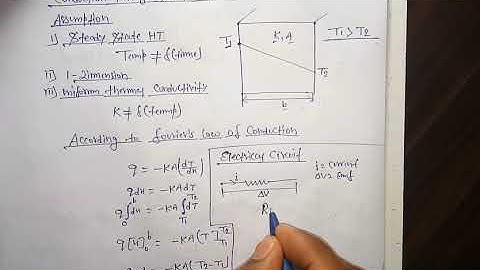 Assumption
i) Steady State HT
Temp ≠ f(time)
ii) 1-Dimension
iii) Uniform thermal conductivity
K ≠ f(temp)
T1
K, A
T1 > T2
T2
b
According to fourier's law of Conduction
q = -KA(dT/dx)
qdx = -KAdT
q∫₀ᵇdx = -KA∫dT
T2
T1
q[x]₀ᵇ = -KA[T]
T2
T1
-KA(T2-T1)
Electrical Circuit
i
ΔV
R
i = current
ΔV = Emf